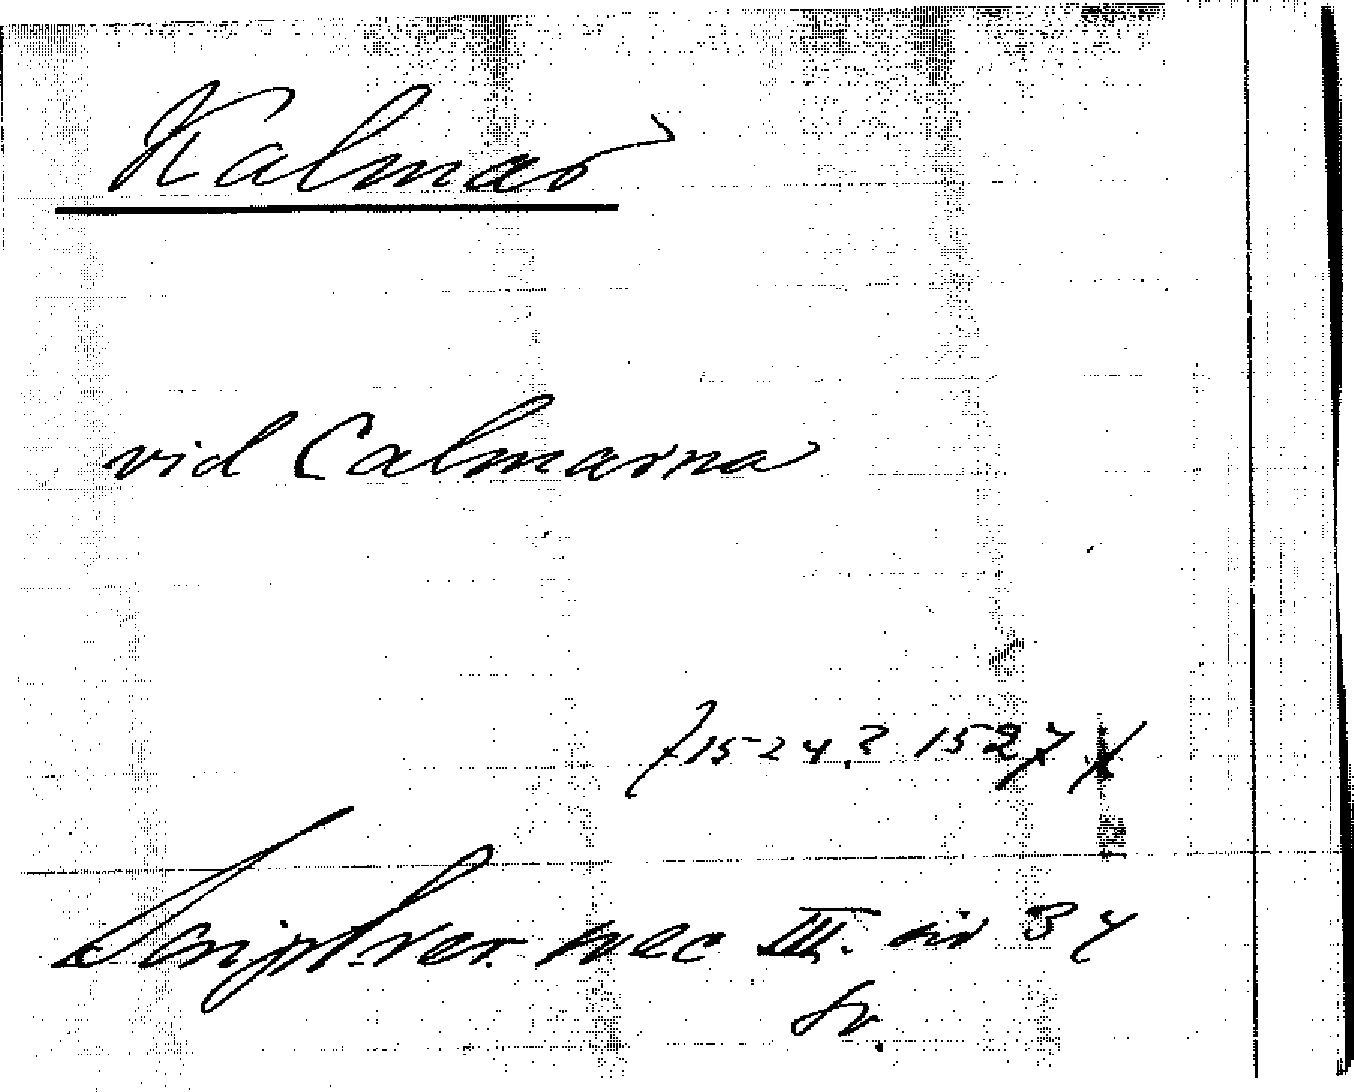 Kalmar
vid Calmarna
/1524? 1527
Script. rer. svec III. sid 34
Sv.